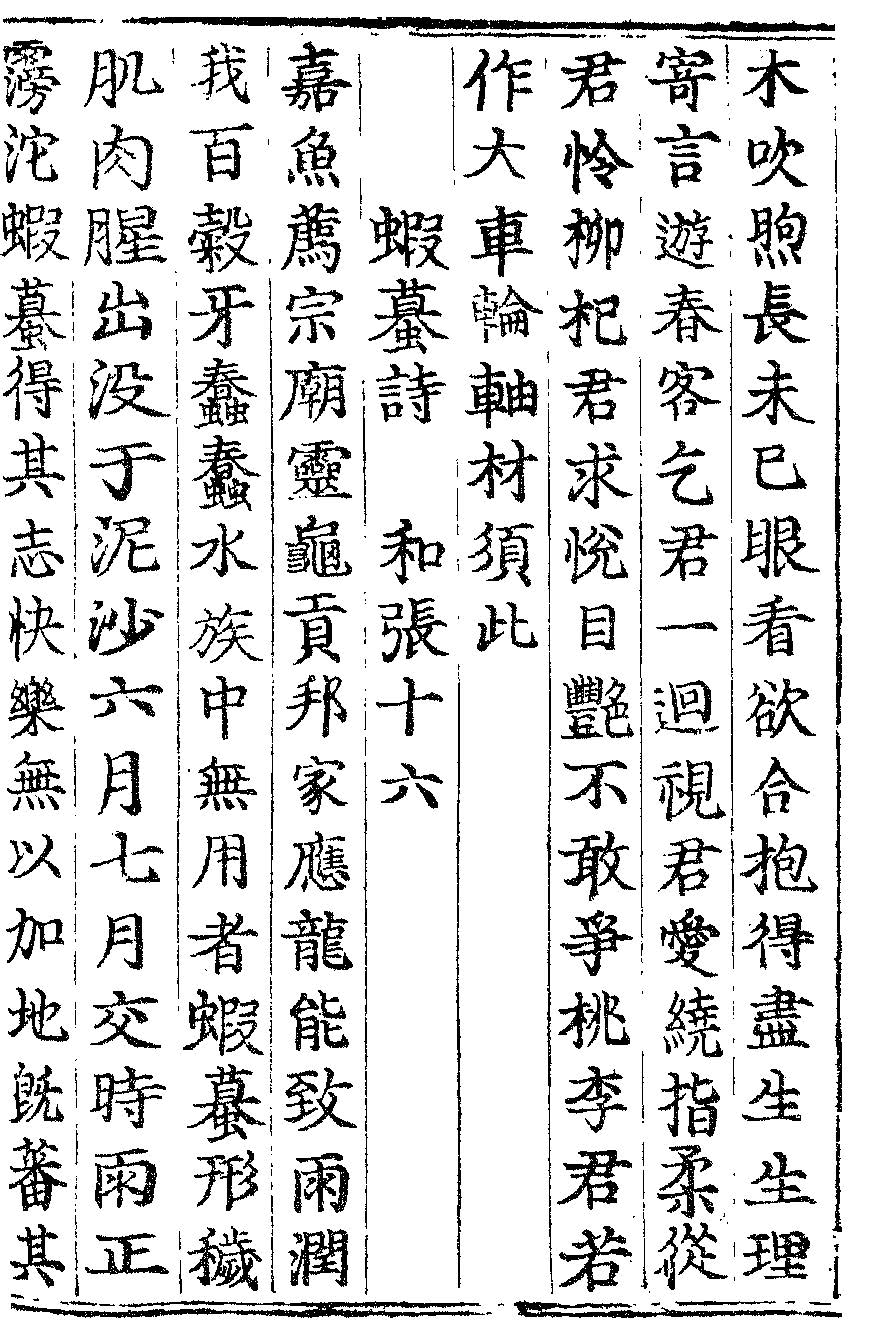 木吹煦長未已眼看欲合抱得盡生生理
寄言遊春客乞君一迴視君愛繞指柔從
君怜柳杞君求悅目豔不敢爭桃李君若
作大車輪軸材須此
蝦蟇詩　和張十六
嘉魚薦宗廟靈龜貢邦家應龍能致雨潤
我百穀牙蠢蠢水族中無用者蝦蟇形穢
肌肉腥出没于泥沙六月七月交時雨正
霶沱蝦蟇得其志快樂無以加地旣蕃其